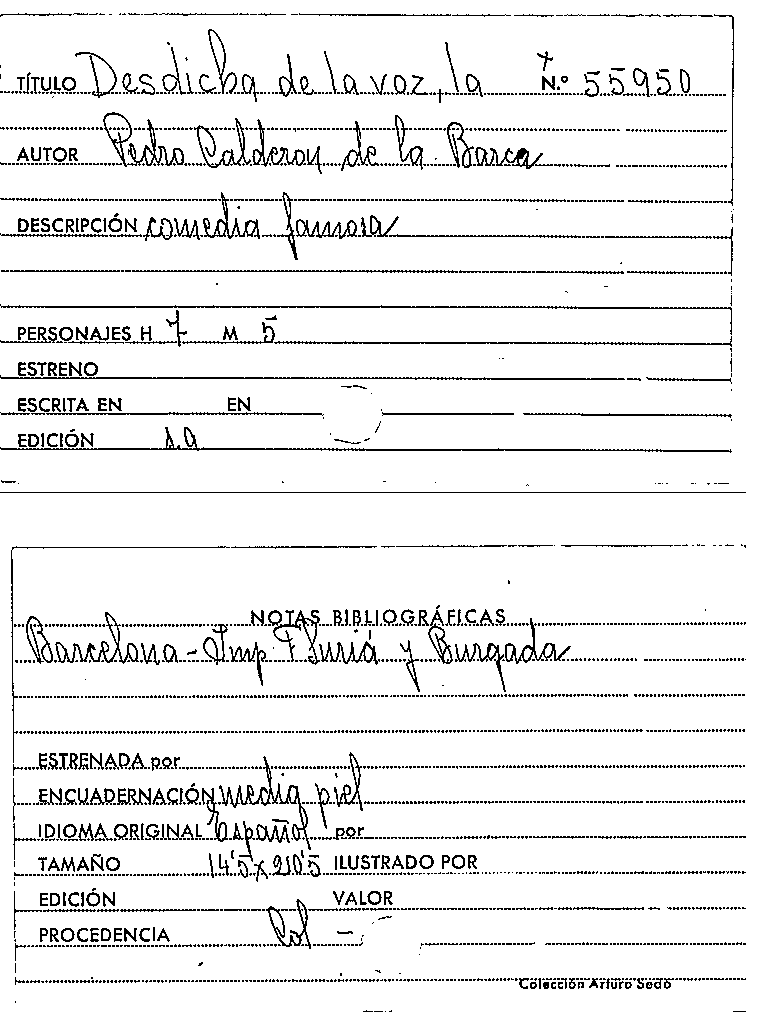 TÍTULO Desdicha de la voz, la N.º 55950
AUTOR Pedro Calderon de la Barca
DESCRIPCIÓN comedia famosa
PERSONAJES H 7 M 5
ESTRENO
ESCRITA EN EN
EDICIÓN s.a
NOTAS BIBLIOGRÁFICAS
Barcelona - Imp F Suriá y Burgada
ESTRENADA por
ENCUADERNACIÓN media piel
IDIOMA ORIGINAL Español por
TAMAÑO 14'5 x 210'5 ILUSTRADO POR
EDICIÓN VALOR
PROCEDENCIA Col -
Colección Arturo Sedó